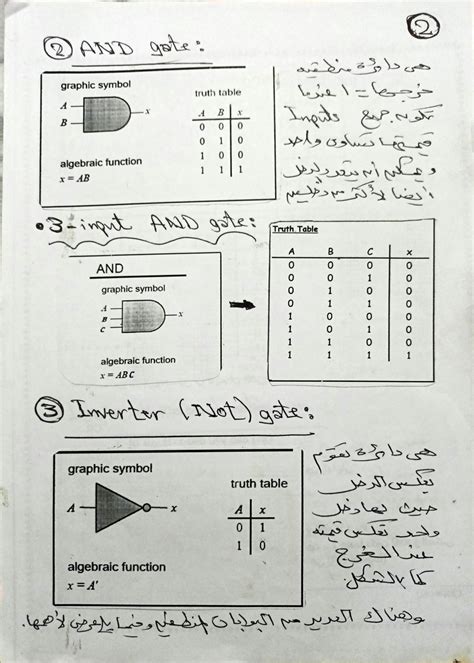 2
② AND gate:
graphic symbol
A
B
x
algebraic function
x = AB
truth table
A B x
0 0 0
0 1 0
1 0 0
1 1 1
هى دائرة منطقيه
خرجها = 1 عندما
تكون جميع Inputs
قيمتها تساوى واحد
ويمكن أن يتعدد الدخل
أيضا لأكثر من دخلين
• 3-input AND gate:
AND
graphic symbol
A
B
C
x
algebraic function
x = ABC
Truth Table
A B C x
0 0 0 0
0 0 1 0
0 1 0 0
0 1 1 0
1 0 0 0
1 0 1 0
1 1 0 0
1 1 1 1
③ Inverter (Not) gate:
graphic symbol
A
x
algebraic function
x = A'
truth table
A x
0 1
1 0
هى دائرة تقوم
بعكس الدخل
حيث لها دخل
واحد تعكس قيمته
عند الخرج
كما بالشكل
وهناك العديد من البوابات المنطقيه وفيما يلى عرض لأهمها.